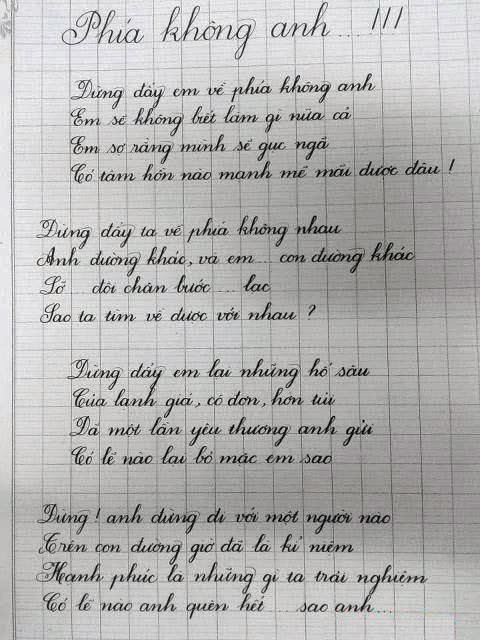 Phía không anh... !!!
Đừng đẩy em về phía không anh
Em sẽ không biết làm gì nữa cả
Em sợ rằng mình sẽ gục ngã
Có tâm hồn nào mạnh mẽ mãi được đâu !
Đừng đẩy ta về phía không nhau
Anh đường khác, và em... con đường khác
Lỡ... đôi chân bước... lạc
Sao ta tìm về được với nhau ?
Đừng đẩy em lại những hố sâu
Của lạnh giá, cô đơn, hờn tủi
Đã một lần yêu thương anh gửi
Có lẽ nào lại bỏ mặc em sao
Đừng ! anh đừng đi với một người nào
Trên con đường giờ đã là kỉ niệm
Hạnh phúc là những gì ta trải nghiệm
Có lẽ nào anh quên hết... sao anh...